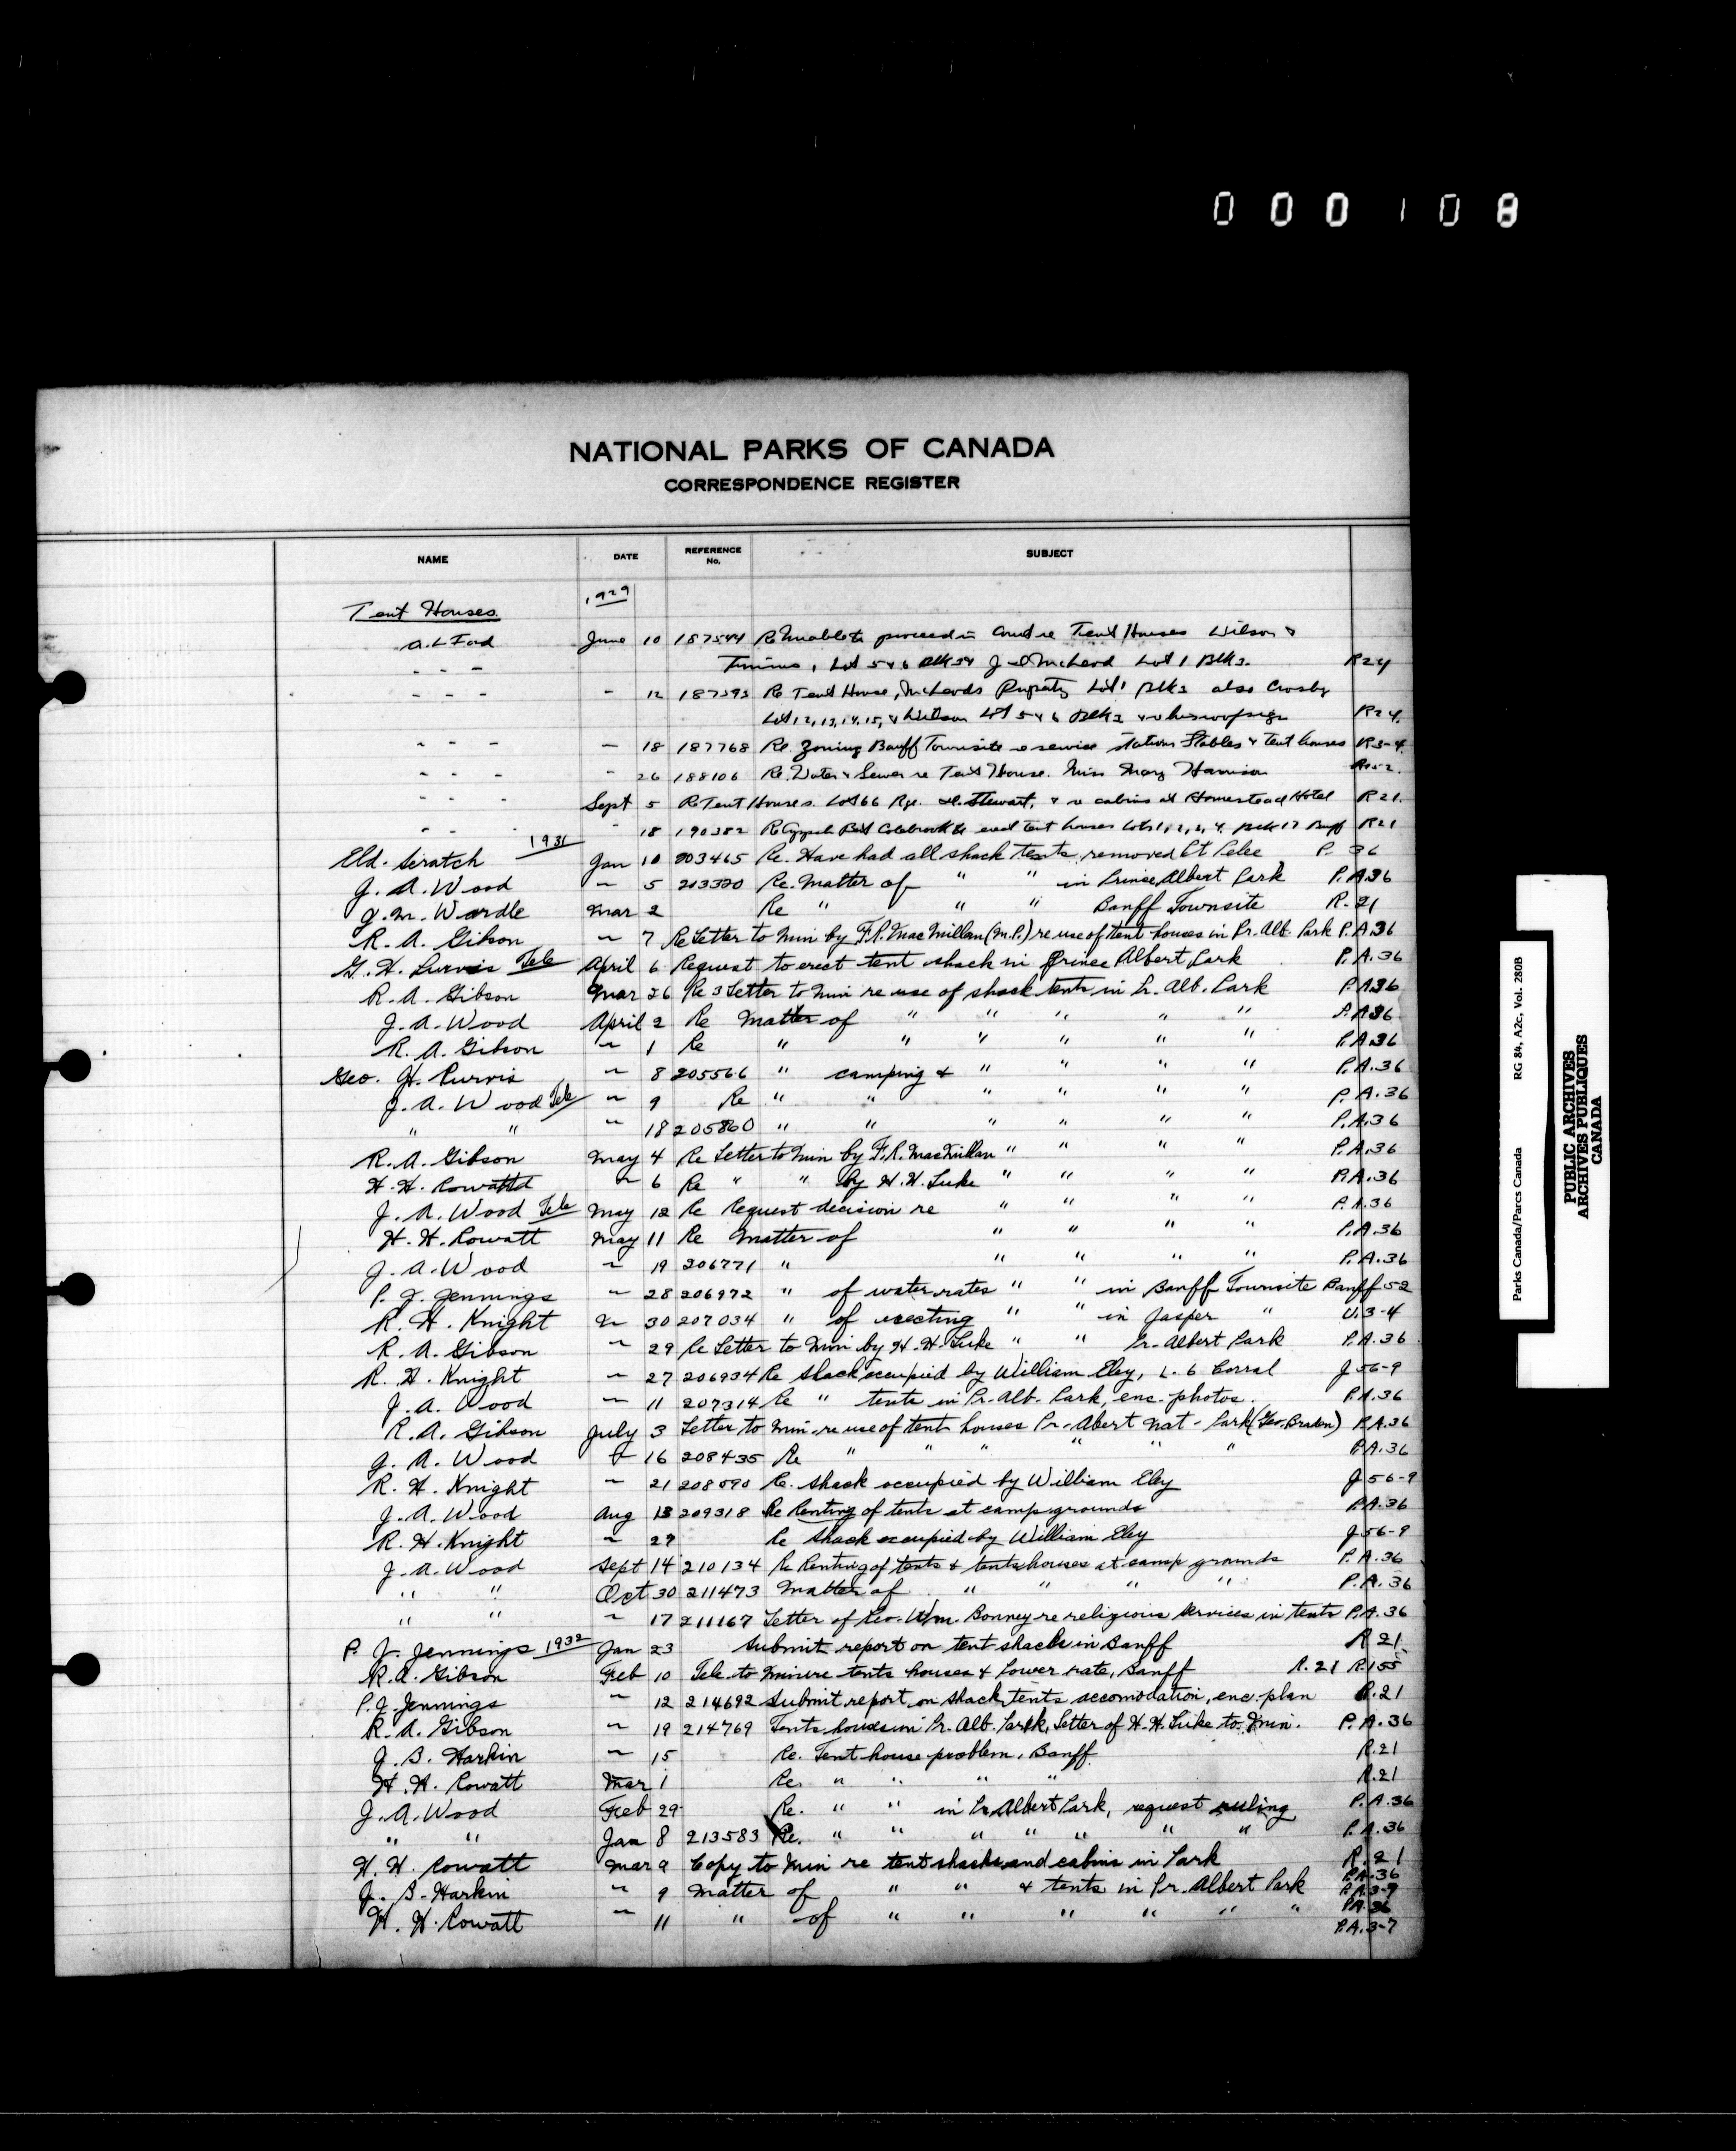 000108
NATIONAL PARKS OF CANADA
CORRESPONDENCE REGISTER
NAME DATE REFERENCE No. SUBJECT
Tent Houses. 1929
June 10 187544 Re Unable to proceed in Tent Houses Wilson &
Lot 5 & 6 Blk 34 McLeod Lot 1 Blk 2. R24
" - - - 12 Re Tent House, McLeods Property Lot 1 Blk 2 also Crosby
Lot 12, 13, 14, 15, & Wilson Lot 5 & 6 Blk 2 R24.
" - - - 18 187768 Re. Zoning Banff Townsite service stations Stables & Tent houses R3-4
" - - - 26 188106 Re. Water & Sewer re Tent House. Miss Mary Harrison
" - - - Sept 5 Re Tent Houses. Lot 66 Stewart, & re cabins at Homestead Hotel R21.
" - - - 18 190382 erect tent houses Lots 1, 2, 17 Banff R21
Eld. Scratch 1931 Jan 10 203465 Re. Have had all shack tents, removed Pt Pelee P. 36
J. A. Wood " 5 203320 Re. Matter of " " in Prince Albert Park P.A.36
J. M. Wardle Mar 2 Re " " " Banff Townsite R. 21
R. A. Gibson " 7 Re Letter to Min by F.R. MacMillan (M.P.) re use of tent-houses in Pr. Alb. Park P.A.36
G. H. Purvis Tele April 6 Request to erect tent shack in Prince Albert Park P.A.36
R. A. Gibson Mar 26 Re 3 Letter to Min re use of shack tents in Pr. Alb. Park P.A.36
J. A. Wood April 2 Re Matter of " " " " " P.A.36
R. A. Gibson " 1 Re " " " " " " P.A.36
Geo. H. Purvis " 8 205566 " camping & " " " " P.A.36
J. A. Wood Tele " 9 Re " " " " " " P.A.36
" " " 18 205860 " " " " " " P.A.36
R. A. Gibson May 4 Re Letter to Min by F.R. MacMillan " " " " P.A.36
H. H. Rowatt " 6 Re " " by H. H. Luke " " " " P.A.36
J. A. Wood Tele May 12 Re Request decision re " " " " P.A.36
H. H. Rowatt May 11 Re Matter of " " " " P.A.36
J. A. Wood " 19 206771 " " " " " P.A.36
P. J. Jennings " 28 206972 " of water rates " " in Banff Townsite Banff 52
R. H. Knight " 30 207034 " of erecting " " in Jasper " U.3-4
R. A. Gibson " 29 Re Letter to Min by H. H. Luke " " Pr. Albert Park P.A.36
R. H. Knight " 27 206934 Re shack occupied by William Eley, L. 6 Corral J 56-9
J. A. Wood " 11 207314 Re " tents in Pr. Alb. Park, enc. photos. P.A.36
R. A. Gibson July 3 Letter to Min. re use of tent houses Pr. Abert Nat. Park (Geo. Braden) P.A.36
J. A. Wood " 16 208435 Re " " " " " " P.A.36
R. H. Knight " 21 208590 Re. shack occupied by William Eley J 56-9
J. A. Wood Aug 13 209318 Re Renting of tents at camp grounds P.A.36
R. H. Knight " 27 Re shack occupied by William Eley J 56-9
J. A. Wood Sept 14 210134 Re Renting of tents & tents houses at camp grounds P.A.36
" " Oct 30 211473 Matter of " " " " P.A.36
" " " 17 211167 Letter of Geo. Wm. Bonney re religious services in tents P.A.36
P. J. Jennings 1932 Jan 23 Submit report on tent shacks in Banff R 21
R. A. Gibson Feb 10 Tele. to Min re tents houses & lower rate, Banff R.21 R.155
P. J. Jennings " 12 214692 Submit report on shack tents accomodation, enc. plan R.21
R. A. Gibson " 19 214769 Tents houses in Pr. Alb. Park, Letter of H. H. Luke to Min. P.A.36
J. B. Harkin " 15 Re. Tent house problem, Banff R.21
H. H. Rowatt Mar 1 Re. " " " " R.21
J. A. Wood Feb 29 Re. " " in Pr. Albert Park, request ruling P.A.36
" " Jan 8 213583 Re. " " " " " " " P.A.36
H. H. Rowatt Mar 9 Copy to Min re tent shacks and cabins in Park R.21
P.A.36
J. B. Harkin " 9 Matter of " " & tents in Pr. Albert Park P.A.3-7
P.A.36
H. H. Rowatt " 11 " of " " " " " " P.A.3-7
Parks Canada/Parcs Canada RG 84, A2c, Vol. 280B
PUBLIC ARCHIVES
ARCHIVES PUBLIQUES
CANADA